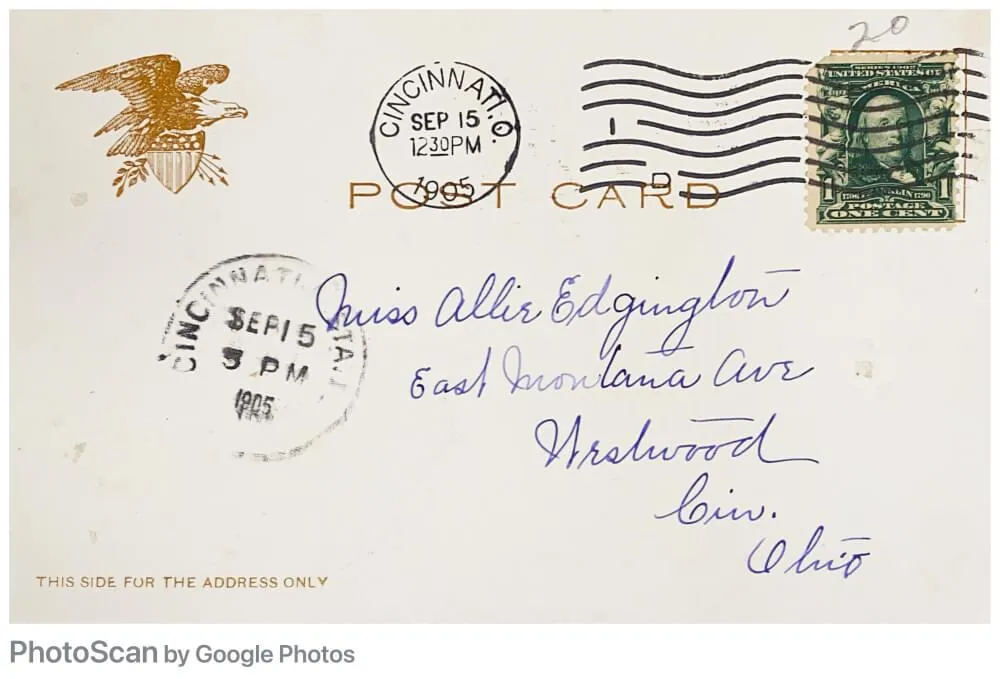 20
SERIES 1902
UNITED STATES OF
AMERICA
1706 FRANKLIN 1790
1 1
POSTAGE
ONE CENT
CINCINNATI, O.
SEP 15
1230PM
1905
1
D
POST CARD
CINCINNATI STA.
SEP 15
3 PM
1905
Miss Allie Edgington
East Montana Ave
Westwood
Cin.
Ohio
THIS SIDE FOR THE ADDRESS ONLY
PhotoScan by Google Photos